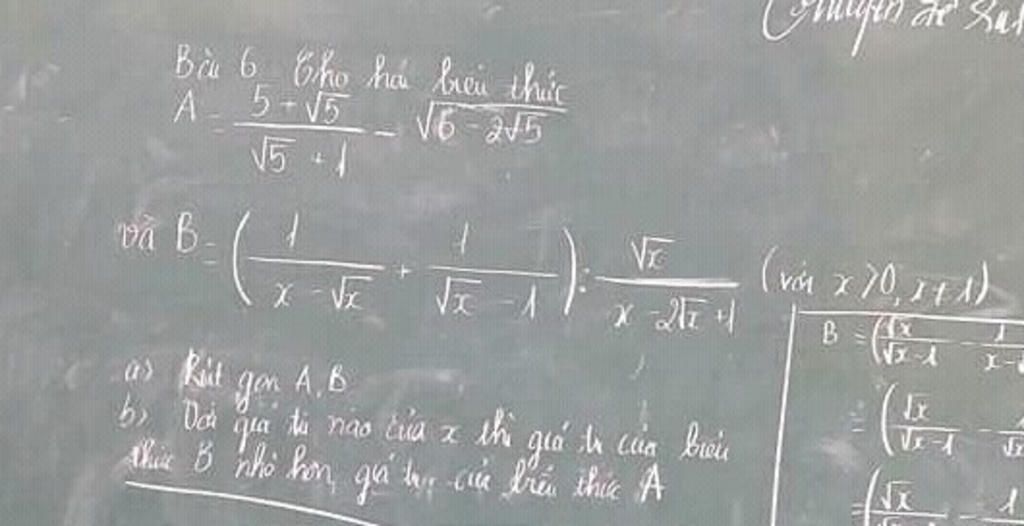 Chuyên đề
Bài 6 Cho hai biểu thức
A = (5 + √5)/(√5 + 1) - √(6 - 2√5)
và B = (1/(x - √x) + 1/(√x - 1)) : √x/(x - 2√x + 1) (với x > 0, x ≠ 1)
a) Rút gọn A, B
b) Với giá trị nào của x thì giá trị của biểu
thức B nhỏ hơn giá trị của biểu thức A
B = (√x/(√x - 1) - 1/(x -
= (√x/(√x - 1) - 1/(√x
= (√x